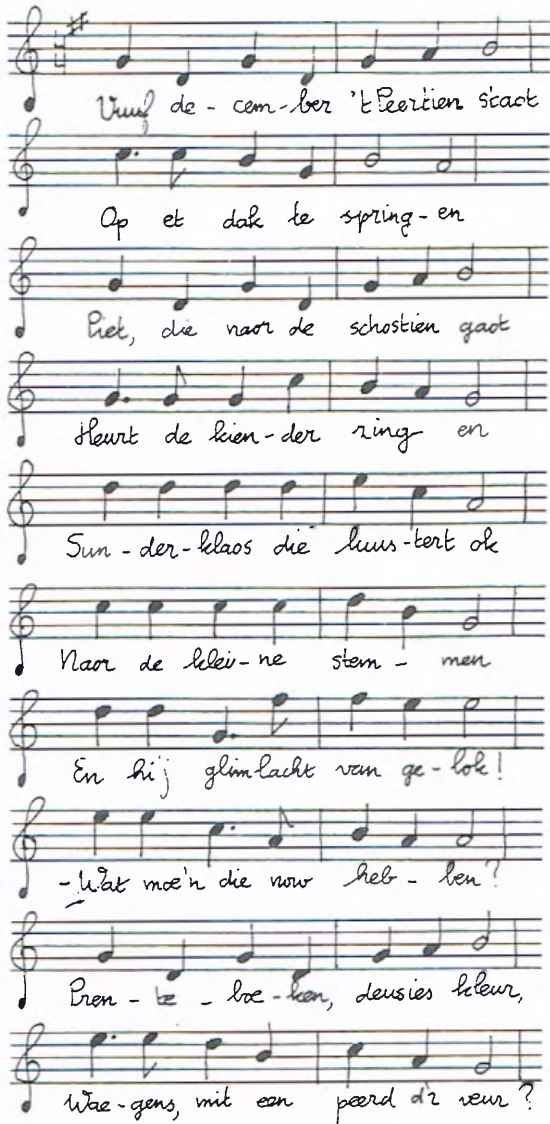 Vuuf de - cem - ber 't Peertien staot
Op et dak te spring - en
Piet, die naor de schostien gaot
Heurt de kien - der zing en
Sun - der - klaos die luus - tert ok
Naor de klei - ne stem - men
En hi'j glimlacht van ge - lok!
- Wat moe'n die now heb - ben?
Pren - te - boe - ken, deusies kleur,
Wae - gens, mit een peerd d'r veur?